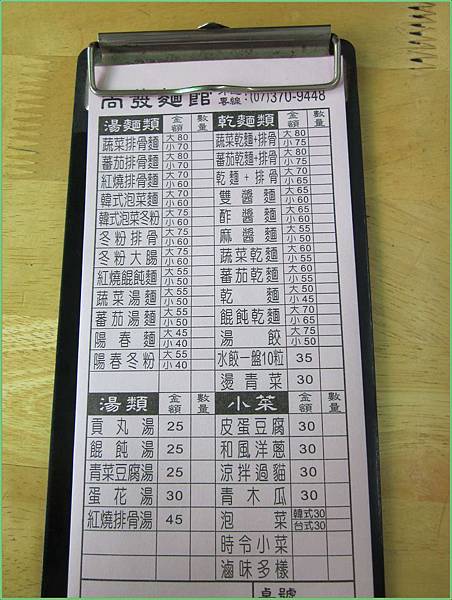 尚發麵館 專線:(07)370-9448
湯麵類 金額 數量 乾麵類 金額 數量
蔬菜排骨麵 大80 小70 蔬菜乾麵+排骨 大80 小75
蕃茄排骨麵 大80 小70 蕃茄乾麵+排骨 大80 小75
紅燒排骨麵 大80 小70 乾麵+排骨 大70 小65
韓式泡菜麵 大80 小70 雙醬麵 大75 小65
韓式泡菜冬粉 大75 小65 酢醬麵 大70 小60
冬粉排骨 大75 小65 麻醬麵 大70 小60
冬粉大腸 大75 小60 蔬菜乾麵 大60 小55
紅燒餛飩麵 大55 小50 蕃茄乾麵 大60 小55
蔬菜湯麵 大55 小50 乾麵 大50 小45
蕃茄湯麵 大55 小50 餛飩乾麵 大80 小70
陽春麵 大45 小40 湯餃 大75 小50
陽春冬粉 大55 小40 水餃一盤10粒 35
燙青菜 30
湯類 金額 數量 小菜 金額 數量
貢丸湯 25 皮蛋豆腐 30
餛飩湯 25 和風洋蔥 30
青菜豆腐湯 25 涼拌過貓 30
蛋花湯 30 青木瓜 30
紅燒排骨湯 45 泡菜 韓式30 台式30
時令小菜
滷味多樣
桌號